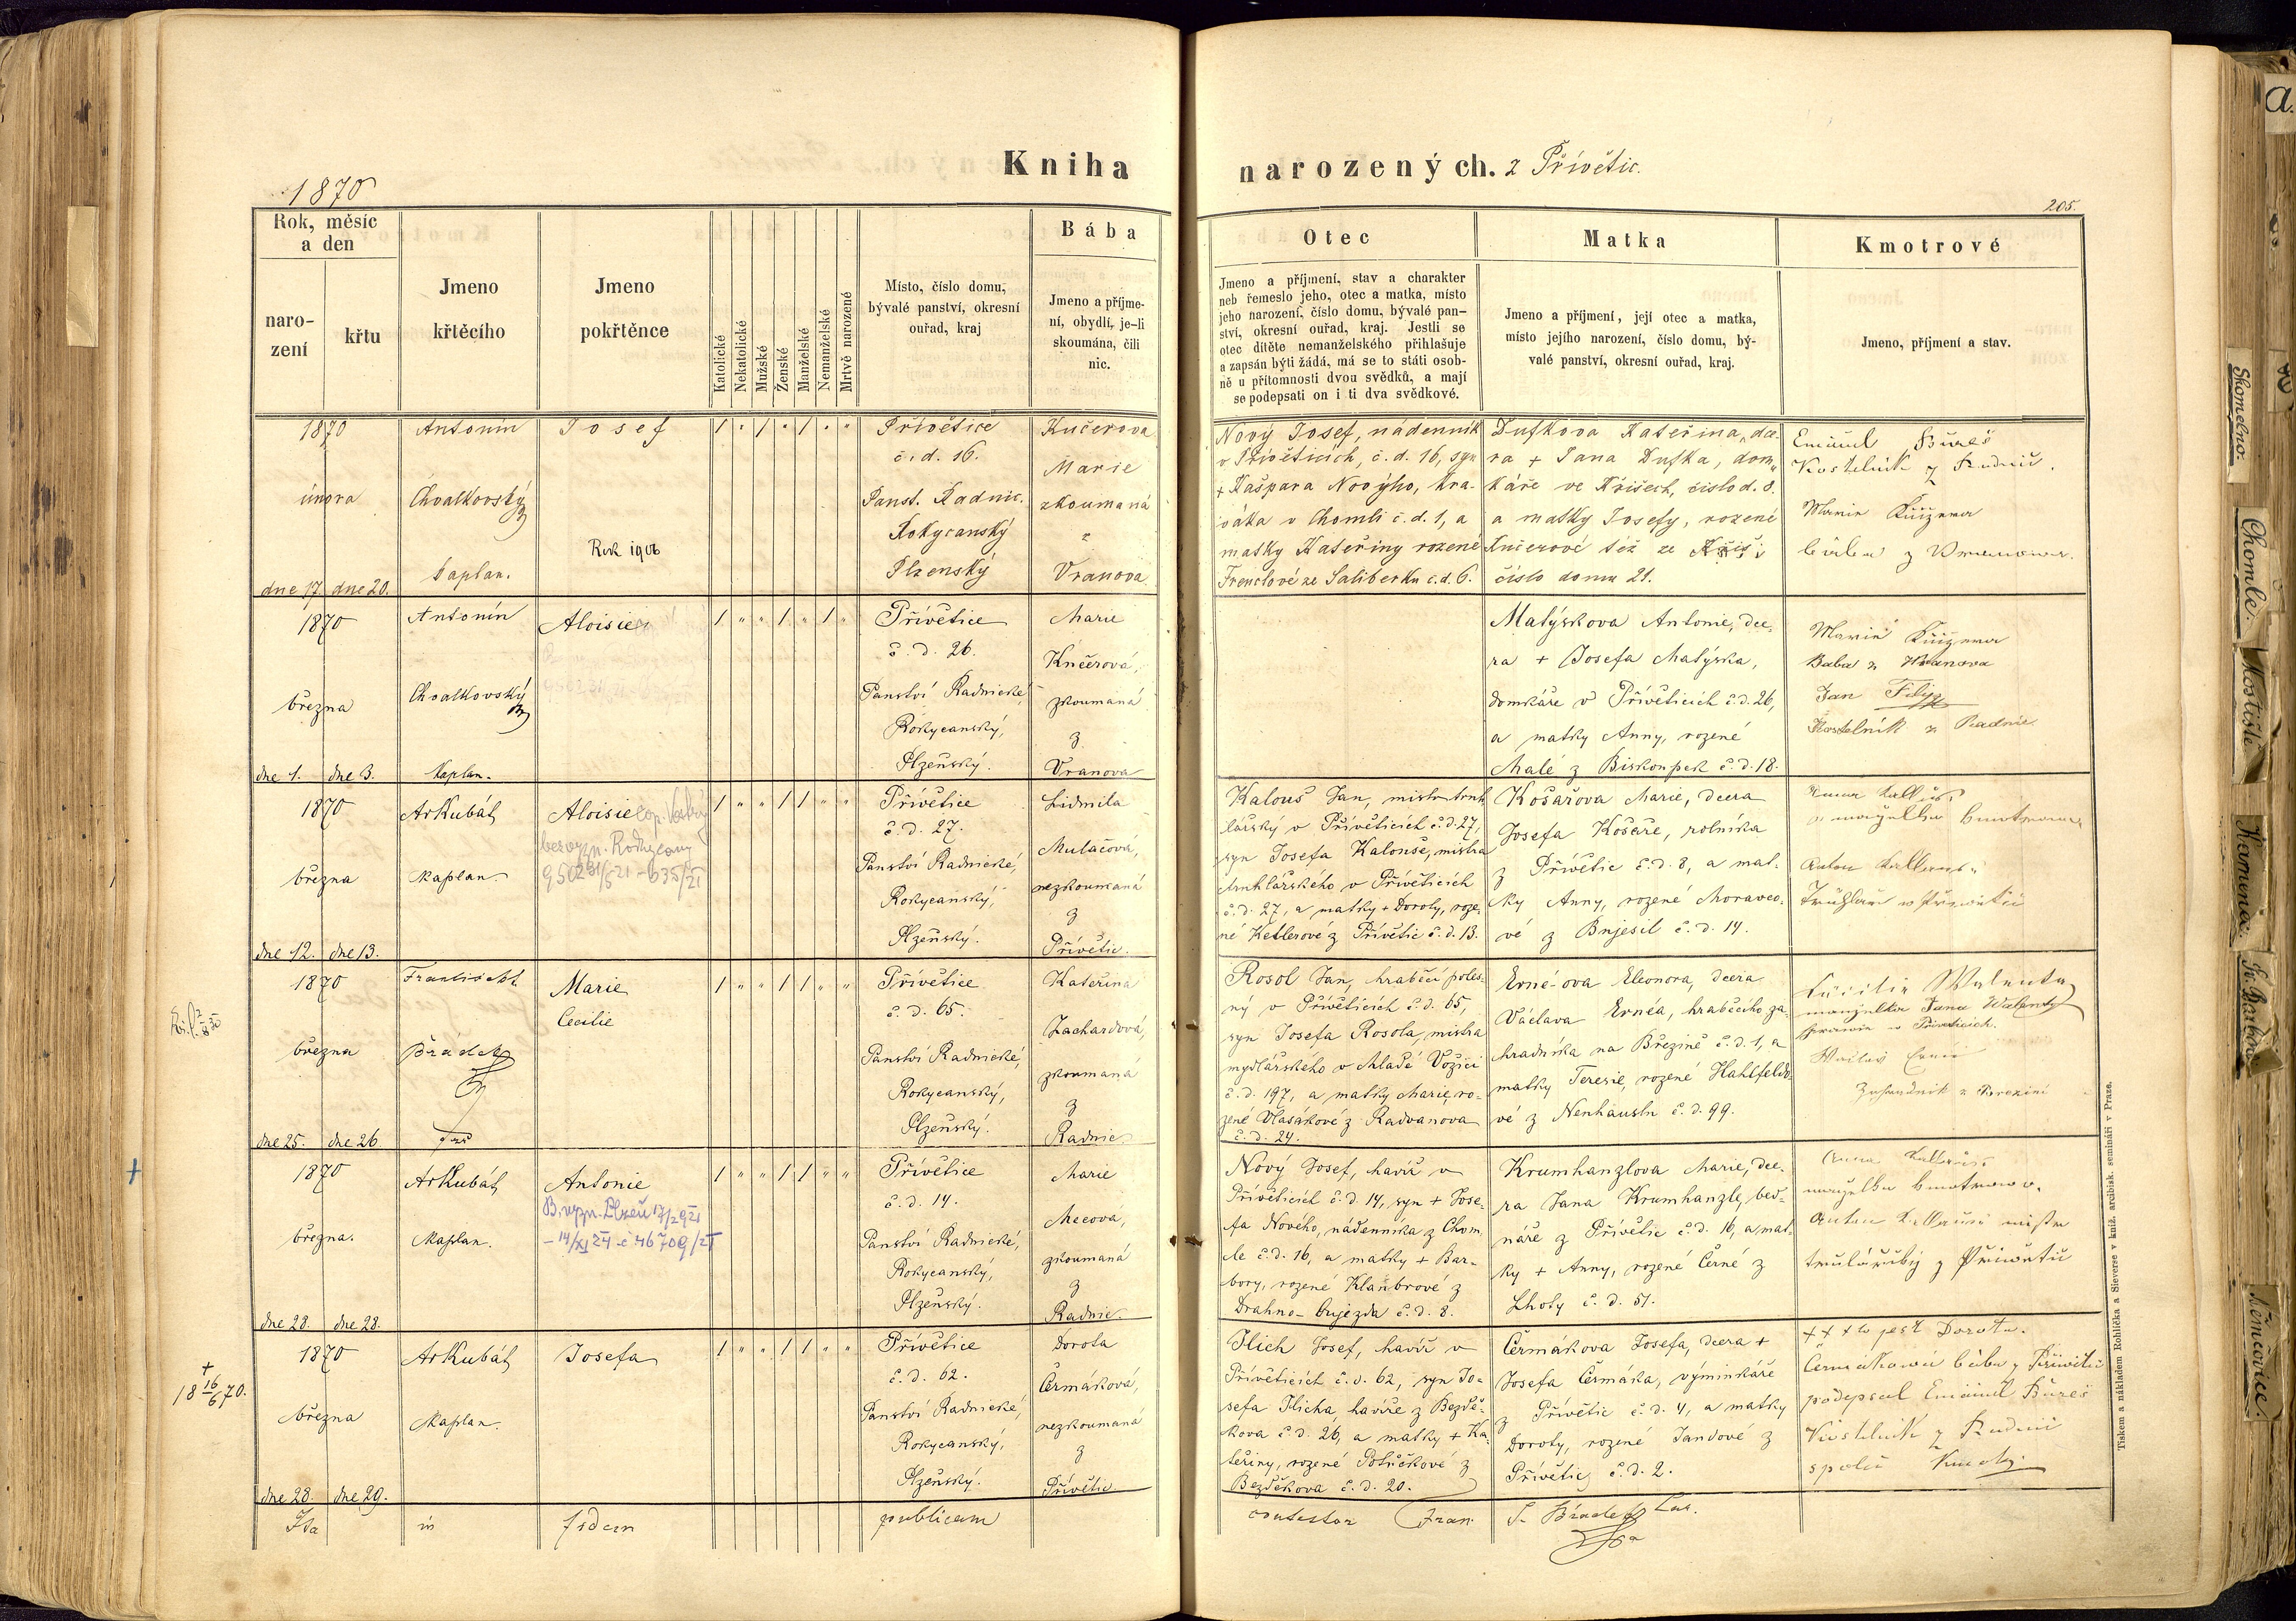 1870
Kniha narozených. z Přívětic.
205.
Rok, měsíc
a den
naro-
zení
křtu
Jmeno
křtěcího
Jmeno
pokřtěnce
Katolické
Nekatolické
Mužské
Ženské
Manželské
Nemanželské
Mrtvě narozené
Místo, číslo domu,
bývalé panství, okresní
ouřad, kraj
Bába
Jmeno a příjme-
ní, obydlí, je-li
skoumána, čili
nic.
Otec
Jmeno a příjmení, stav a charakter
neb řemeslo jeho, otec a matka, místo
jeho narození, číslo domu, bývalé pan-
ství, okresní ouřad, kraj. Jestli se
otec dítěte nemanželského přihlašuje
a zapsán býti žádá, má se to státi osob-
ně u přítomnosti dvou svědků, a mají
se podepsati on i ti dva svědkové.
Matka
Jmeno a příjmení, její otec a matka,
místo jejího narození, číslo domu, bý-
valé panství, okresní ouřad, kraj.
Kmotrové
Jmeno, příjmení a stav.
1870
února
dne 17. dne 20.
Antonín
Chvalkovský
kaplan.
Josef
Rok 1906
Přívětice
č. d. 16.
Panst. Radnic.
Rokycanský
Plzenský
Kučerova
Marie
zkoumaná
z
Vranova
Nový Josef, nádenník
v Přívěticích, č. d. 16, syn
+ Kašpara Novýho, kra-
váka v Chomli č. d. 1, a
matky Kateřiny rozené
Frenclové ze Saliberku č. d. 6.
Dufkova Kateřina, dce-
ra + Jana Dufka, dom-
káře ve Kříšech, číslo d. 8.
a matky Josefy, rozené
Kučerové též ze Kříš
číslo domu 21.
Emanuel Bureš
Kostelník z Radnic.
Marie
bába z Vranova.
1870
března
dne 1. dne 3.
Antonín
Chvalkovský
Kaplan.
Aloisie
Přívětice
č. d. 26.
Panství Radnické,
Rokycanský,
Plzeňský.
Marie
Kučerová,
zkoumaná
z
Vranova
Matýskova Antonie, dce-
ra + Josefa Matýska,
domkáře v Přívěticích č. d. 26,
a matky Anny, rozené
Malé z Biskoupek č. d. 18.
Marie
Baba z Vranova
Jan Filip
Kostelník z Radnic
1870
března
dne 12. dne 13.
Ar Kubát
Kaplan.
Aloisie
Rokycany
Přívětice
č. d. 27.
Panství Radnické,
Rokycanský,
Plzeňský.
Lidmila
Mulačová,
nezkoumaná
z
Přívětic.
Kalous Jan, mistr truh-
lářský v Přívěticích č. d. 27,
syn Josefa Kalouse, mistra
truhlářského v Přívěticích
č. d. 27, a matky + Doroty, roze-
né Ketlerové z Přívětic č. d. 13.
Košařova Marie, dcera
Josefa Košaře, rolníka
z Přívětic č. d. 8, a mat-
ky Anny, rozené Moravco-
vé z Bujesil č. d. 14.
1870
března
dne 25. dne 26.
František
Brádek
Marie
Cecilie
Přívětice
č. d. 65.
Panství Radnické,
Rokycanský,
Plzeňský.
Kateřina
Zachardová,
zkoumaná
z
Radnic
Rosol Jan, hraběcí poles-
ný v Přívěticích č. d. 65,
syn Josefa Rosola, mistra
mydlářského v Mladé Vožici
č. d. 197, a matky Marie, ro-
zené Vlasákové z Radvanova
č. d. 24.
Erné-ova Eleonora, dcera
Václava Ernéa, hraběcího za-
hradníka na Březině č. d. 1, a
matky Teresie, rozené Hahlfeldo-
vé z Neuhäusln č. d. 99.
manželka Jana Walenty
v Přívěticích.
1870
března.
dne 28. dne 28.
Ar Kubát
Kaplan.
Antonie
Přívětice
č. d. 14.
Panství Radnické,
Rokycanský,
Plzeňský.
Marie
Mecová,
zkoumaná
z
Radnic.
Nový Josef, havíř v
Přívěticích č. d. 14, syn + Jose-
fa Nového, nádenníka z Chom-
le č. d. 16, a matky + Bar-
bory, rozené Klaubrové z
Drahno-Oujezda č. d. 8.
Krumhanzlova Marie, dce-
ra Jana Krumhanzle, bed-
náře z Přívětic č. d. 16, a mat-
ky + Anny, rozené Černé z
Lhoty č. d. 51.
+
18 16/6 70.
1870
března
dne 28. dne 29.
Ar Kubát
Kaplan.
Josefa
Přívětice
č. d. 62.
Panství Radnické,
Rokycanský,
Plzeňský.
Dorota
Čermáková,
nezkoumaná
z
Přívětic
Jlich Josef, havíř v
Přívěticích č. d. 62, syn Jo-
sefa Jlicha, havíře z Bezdě-
kova č. d. 26, a matky + Ka-
teřiny, rozené Potůčkové z
Bezděkova č. d. 20.
Čermákova Josefa, dcera +
Josefa Čermáka, výminkáře
z Přívětic č. d. 4, a matky
Doroty, rozené Jandové z
Přívětic č. d. 2.
+ + + to jest Dorota.
Čermakowa bába z Přiwětic
podepsal Emanuel Bureš
Kostelník z Radnic
Ita in fidem publicam
contestor Fran. S. Brádek
Tiskem a nákladem Rohlíčka a Sieverse v kníž. arcibisk. semináři v Praze.
Skomelno.
Chomle.
Kostiště
Kamenec.
Sv. Barbora
Němčovice.